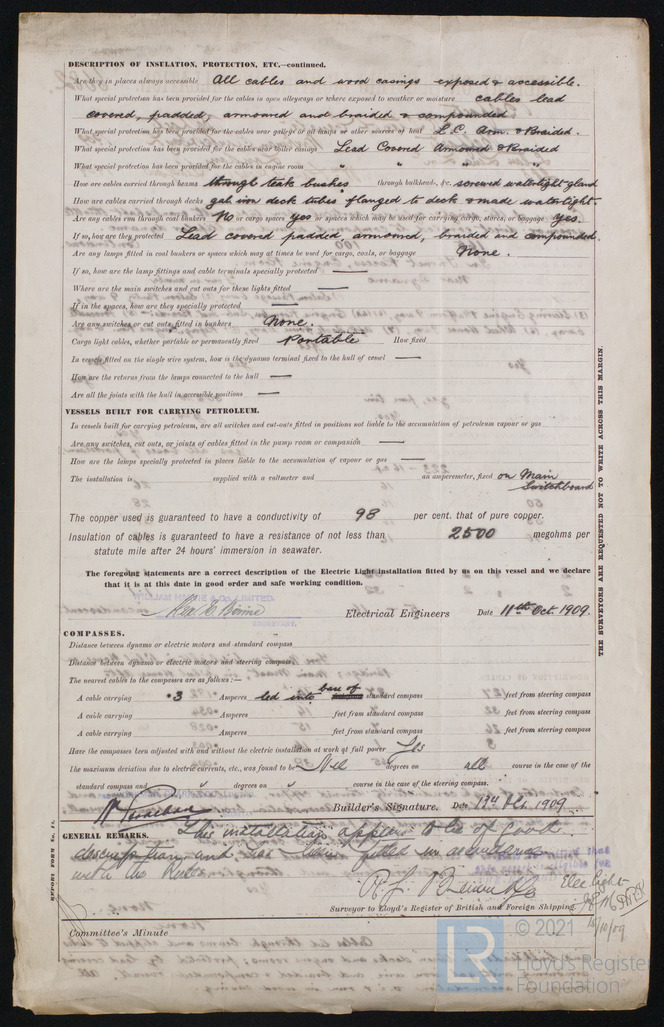 DESCRIPTION OF INSULATION, PROTECTION, ETC.—continued.
Are they in places always accessible All cables and wood casings exposed & accessible.
What special protection has been provided for the cables in open alleyways or where exposed to weather or moisture cables lead
covered, padded, armoured and braided & compounded
What special protection has been provided for the cables near galleys or oil lamps or other sources of heat L.C. Arm. & Braided.
What special protection has been provided for the cables near boiler casings Lead Covered Armoured & Braided
What special protection has been provided for the cables in engine room " " "
How are cables carried through beams through teak bushes through bulkheads, &c. screwed watertight gland
How are cables carried through decks gal: iron deck tubes flanged to deck & made watertight.
Are any cables run through coal bunkers No or cargo spaces yes or spaces which may be used for carrying cargo, stores, or baggage yes.
If so, how are they protected Lead covered padded, armoured, braided and compounded.
Are any lamps fitted in coal bunkers or spaces which may at times be used for cargo, coals, or baggage None.
If so, how are the lamp fittings and cable terminals specially protected —
Where are the main switches and cut outs for these lights fitted —
If in the spaces, how are they specially protected —
Are any switches or cut outs fitted in bunkers None.
Cargo light cables, whether portable or permanently fixed Portable How fixed
In vessels fitted on the single wire system, how is the dynamo terminal fixed to the hull of vessel —
How are the returns from the lamps connected to the hull —
Are all the joints with the hull in accessible positions —
VESSELS BUILT FOR CARRYING PETROLEUM.
In vessels built for carrying petroleum, are all switches and cut-outs fitted in positions not liable to the accumulation of petroleum vapour or gas
Are any switches, cut outs, or joints of cables fitted in the pump room or companion —
How are the lamps specially protected in places liable to the accumulation of vapour or gas —
The installation is supplied with a voltmeter and an amperemeter, fixed on Main
Switchboard
The copper used is guaranteed to have a conductivity of 98 per cent. that of pure copper.
Insulation of cables is guaranteed to have a resistance of not less than 2500 megohms per
statute mile after 24 hours' immersion in seawater.
The foregoing statements are a correct description of the Electric Light installation fitted by us on this vessel and we declare
that it is at this date in good order and safe working condition.
LIMITED.
SECRETARY.
Electrical Engineers Date 11th Oct. 1909.
COMPASSES.
Distance between dynamo or electric motors and standard compass
Distance between dynamo or electric motors and steering compass
The nearest cables to the compasses are as follows:—
A cable carrying .3 Amperes led into base of standard compass feet from steering compass
A cable carrying Amperes feet from standard compass feet from steering compass
A cable carrying Amperes feet from standard compass feet from steering compass
Have the compasses been adjusted with and without the electric installation at work at full power Yes
The maximum deviation due to electric currents, etc., was found to be Nil degrees on all course in the case of the
standard compass and " degrees on " course in the case of the steering compass.
Builder's Signature. Date 1909
GENERAL REMARKS. This installation appears to be of good
description and has been fitted in accordance
with the Rules
Elec Light
Surveyor to Lloyd's Register of British and Foreign Shipping.
16/10/09
Committee's Minute
THE SURVEYORS ARE REQUESTED NOT TO WRITE ACROSS THIS MARGIN.
© 2021
LR
Lloyd's Register
Foundation